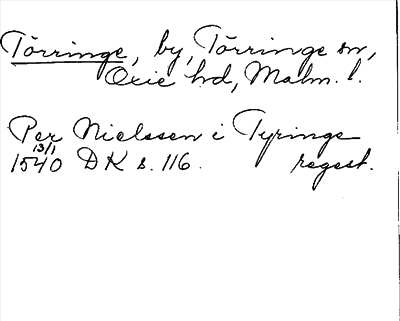 Törringe, by, Törringe sn,
Oxie hd, Malm. l.
Per Nielssen i Tyringe
13/1
1540 DK s. 116. regest.